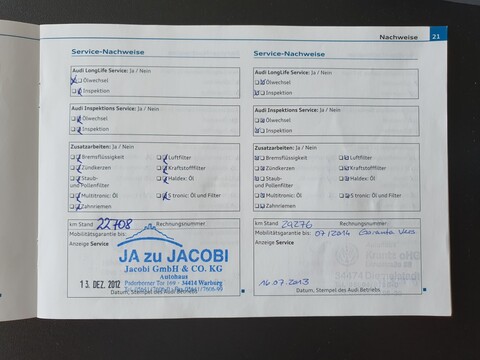 Nachweise 21
Service-Nachweise
Audi LongLife Service: Ja / Nein
Ölwechsel
Inspektion
Audi Inspektions Service: Ja / Nein
Ölwechsel
Inspektion
Zusatzarbeiten: Ja / Nein
Bremsflüssigkeit Luftfilter
Zündkerzen Kraftstofffilter
Staub- und Pollenfilter Haldex: Öl
Multitronic: Öl S tronic: Öl und Filter
Zahnriemen
km Stand 22708 Rechnungsnummer
Mobilitätsgarantie bis:
Anzeige Service
JA zu JACOBI
Jacobi GmbH & CO. KG
Autohaus
Paderborner Tor 169 - 34414 Warburg
13. DEZ. 2012
Datum, Stempel des Audi Betrieb
Service-Nachweise
Audi LongLife Service: Ja / Nein
Ölwechsel
Inspektion
Audi Inspektions Service: Ja / Nein
Ölwechsel
Inspektion
Zusatzarbeiten: Ja / Nein
Bremsflüssigkeit Luftfilter
Zündkerzen Kraftstofffilter
Staub- und Pollenfilter Haldex: Öl
Multitronic: Öl S tronic: Öl und Filter
Zahnriemen
km Stand 29276 Rechnungsnummer
Mobilitätsgarantie bis: 07/2014
Anzeige Service
16.07.2013
Datum, Stempel des Audi Betrieb